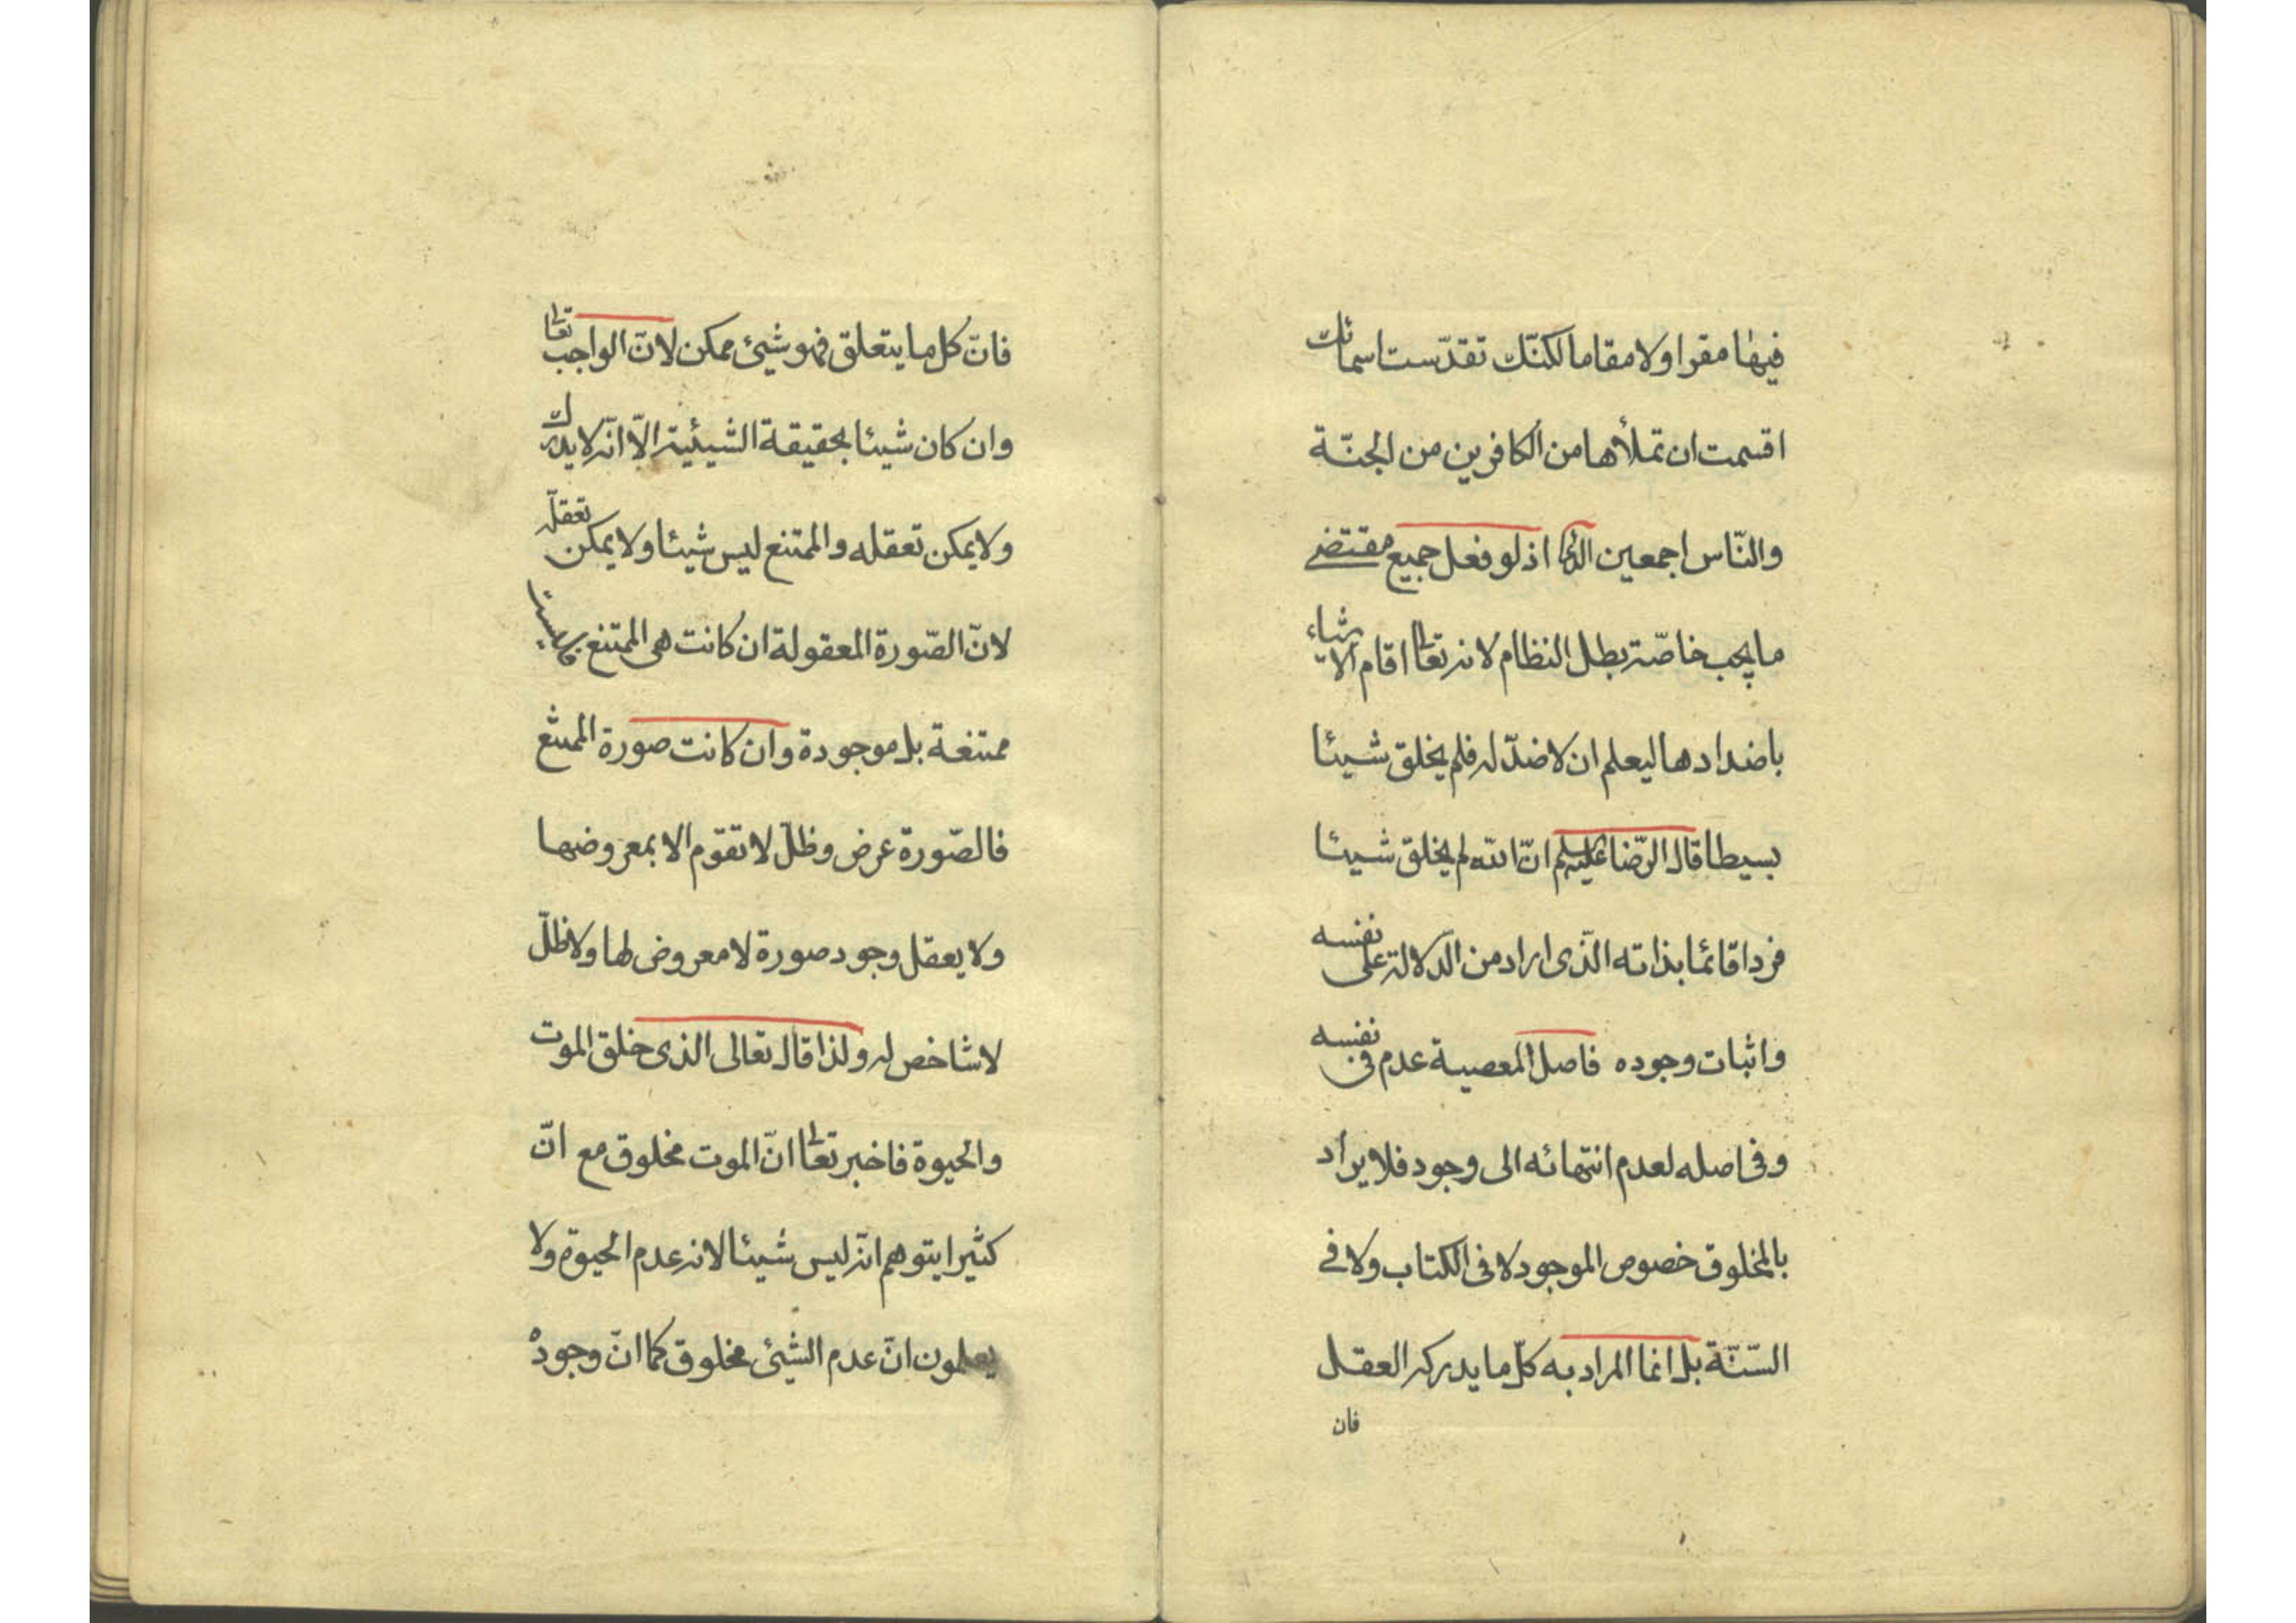 فيها مقرا ولا مقاما لكنّك تقدّست اسمائك
اقسمت ان تملأها من الكافرين من الجنّة
والنّاس اجمعين الدعا اذ لو فعل جميع مقتضى
ما يجب خاصّة بطل النظام لانه تعا اقام الاشياء
باضدادها ليعلم ان لا ضدّ له فلم يخلق شيئا
بسيطا قال الرّضا عليه السلم انّ الله لم يخلق شيئا
فردا قائما بذاته الّذى اراد من الدّلالة على نفسه
واثبات وجوده فاصل المعصية عدم فى نفسه
وفى اصله لعدم انتهائه الى وجود فلا يراد
بالمخلوق خصوص الموجود لا فى الكتاب ولا فى
السّنّة بل انما المراد به كلّ ما يدركه العقل
فان
فانّ كل ما يتعلق فهو شيئ ممكن لانّ الواجب تعا
وان كان شيئا بحقيقة الشيئية الّا انّه لا يدرك
ولا يمكن تعقله والممتنع ليس شيئا ولا يمكن تعقله
لانّ الصّورة المعقولة ان كانت هى الممتنع فليست
ممتنعة بل موجودة وان كانت صورة الممتنع
فالصّورة عرض وظلّ لا تقوّم الا بمعروضها
ولا يعقل وجود صورة لا معروض لها ولا ظلّ
لا شاخص له ولذا قال تعالى الذى خلق الموت
والحيوة فاخبر تعا انّ الموت مخلوق مع انّ
كثيرا يتوهم انّه ليس شيئا لانه عدم الحيوة ولا
يعلمون انّ عدم الشيئ مخلوق كما انّ وجوده